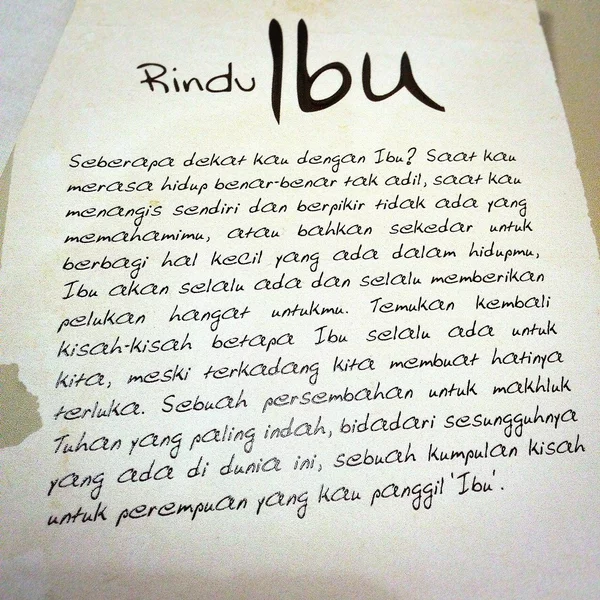 Rindu Ibu
Seberapa dekat kau dengan Ibu? Saat kau
merasa hidup benar-benar tak adil, saat kau
menangis sendiri dan berpikir tidak ada yang
memahamimu, atau bahkan sekedar untuk
berbagi hal kecil yang ada dalam hidupmu,
Ibu akan selalu ada dan selalu memberikan
pelukan hangat untukmu. Temukan kembali
kisah-kisah betapa Ibu selalu ada untuk
kita, meski terkadang kita membuat hatinya
terluka. Sebuah persembahan untuk makhluk
Tuhan yang paling indah, bidadari sesungguhnya
yang ada di dunia ini, sebuah kumpulan kisah
untuk perempuan yang kau panggil 'Ibu'.